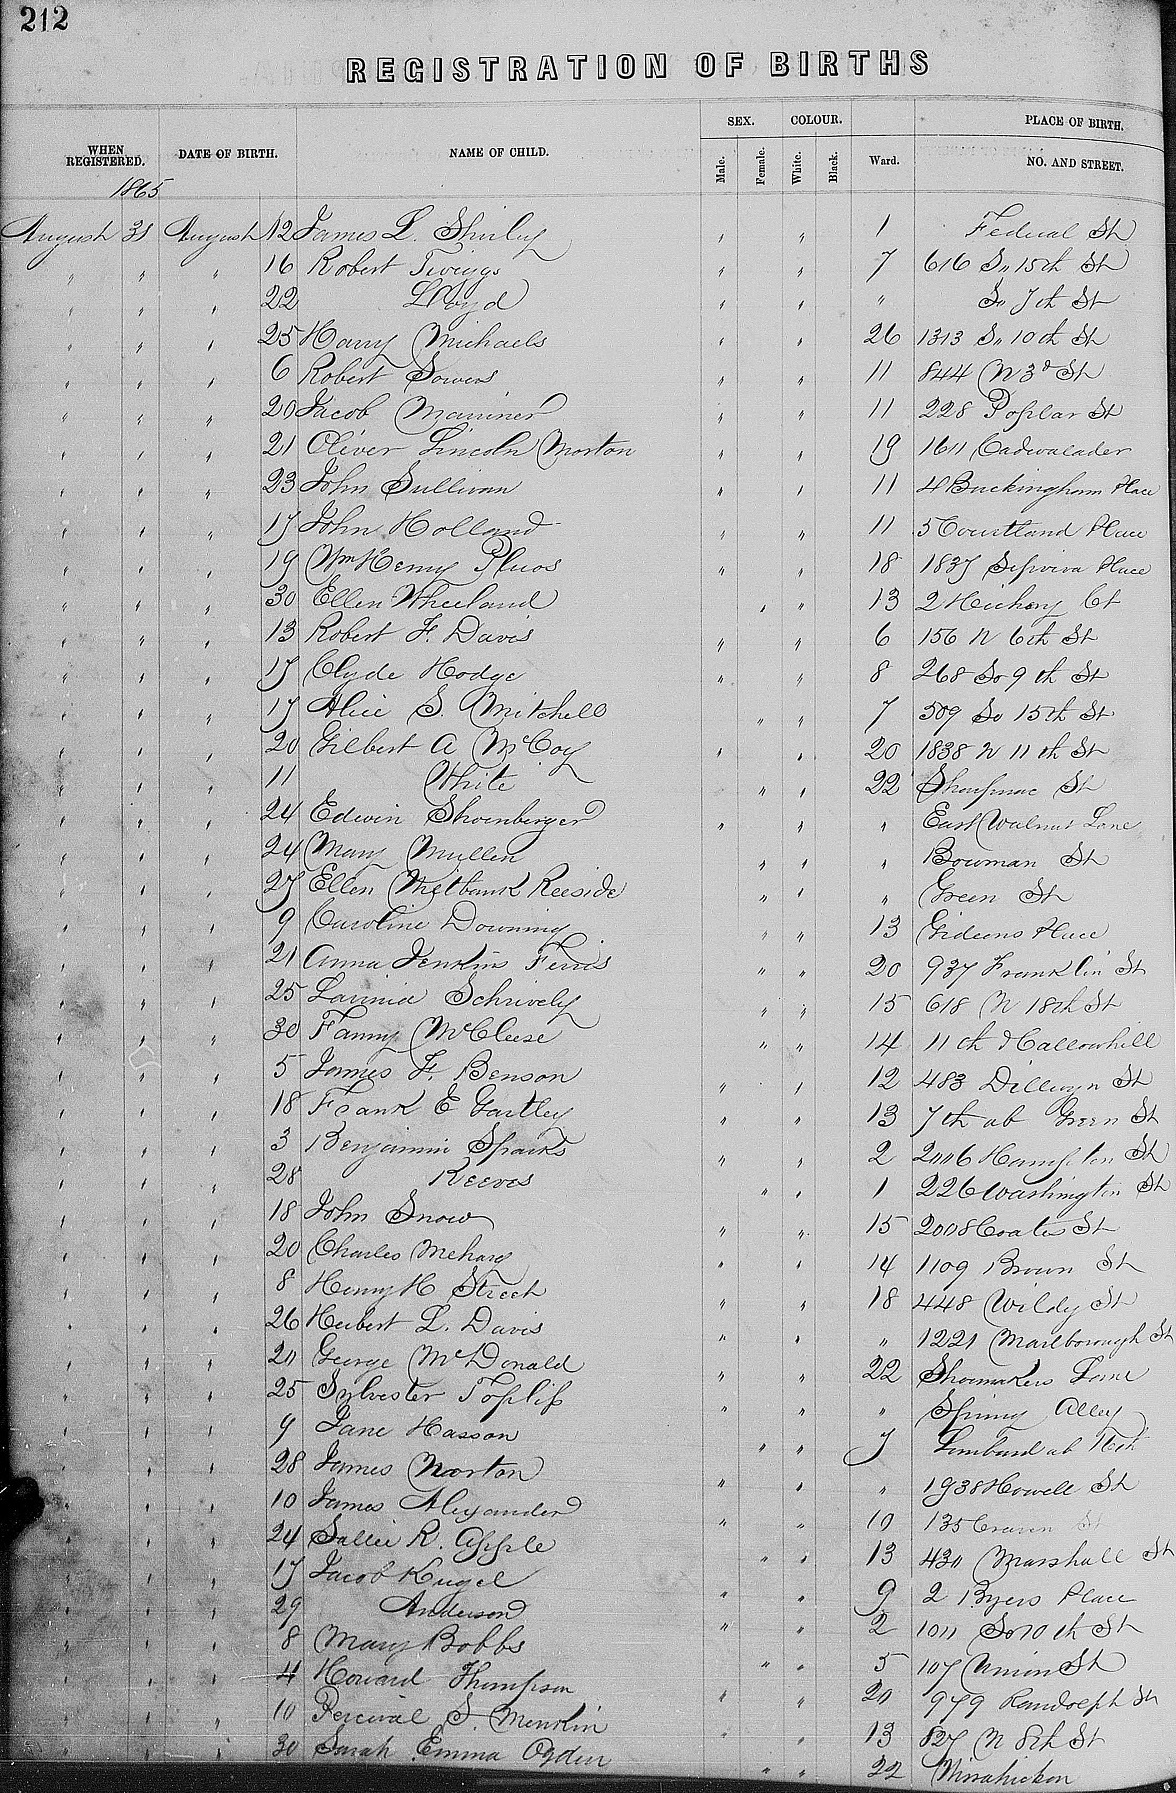 212
REGISTRATION OF BIRTHS
WHEN REGISTERED. DATE OF BIRTH. NAME OF CHILD. SEX. Male. Female. COLOUR. White. Black. Ward. PLACE OF BIRTH. NO. AND STREET.
1865
August 31 August 12 James L. Shirley " " 1 Federal St
" " " 16 Robert Twiggs " " 7 616 So 15th St
" " " 22 Lloyd " " " So 7th St
" " " 25 Harry Michaels " " 26 1313 So 10th St
" " " 6 Robert Sowers " " 11 844 N 3d St
" " " 20 Jacob Mariner " " 11 228 Poplar St
" " " 21 Oliver Lincoln Morton " " 19 1611 Cadwalader
" " " 23 John Sullivan " " 11 4 Buckingham Place
" " " 17 John Holland " " 11 5 Courtland Place
" " " 19 Wm Henry " " 18 1837 Sepviva Place
" " " 30 Ellen Wheeland " " 13 2 Hickory Ct
" " " 13 Robert F. Davis " " 6 156 N 6th St
" " " 17 Clyde Hodge " " 8 268 So 9th St
" " " 17 Alice S. Mitchell " " 7 509 So 15th St
" " " 20 Gilbert A McCoy " " 20 1838 N 11th St
" " " 11 White " " 22 St
" " " 24 Edwin Shoenberger " " " East Walnut Lane
" " " 24 Mary Mullen " " " Bowman St
" " " 27 Ellen Milbank Reeside " " " Green St
" " " 9 Caroline Downing " " 13 Gideons Place
" " " 21 Anna Jenkins Ferris " " 20 937 Franklin St
" " " 25 Lavinia Schively " " 15 618 N 18th St
" " " 30 Fanny McCleese " " 14 11th & Callowhill
" " " 5 James F. Benson " " 12 483 Dillwyn St
" " " 18 Frank E Gartley " " 13 7th ab Green St
" " " 3 Benjamin Sparks " " 2 2006 Hampton St
" " " 28 Reeves " " 1 226 Washington St
" " " 18 John Snow " " 15 2008 Coates St
" " " 20 Charles Mehary " " 14 1109 Brown St
" " " 8 Henry H Streek " " 18 448 Wildy St
" " " 26 Herbert L. Davis " " " 1221 Marlborough St
" " " 20 George McDonald " " 22 Shoemakers Lane
" " " 25 Sylvester Toplif " " " Spring Alley
" " " 9 Jane Hasson " " 7 Lombard ab 16th
" " " 28 James Norton " " " 1938 Howell St
" " " 10 James Alexander " " 10 135 Craven St
" " " 24 Sallie R. Apple " " 13 430 Marshall St
" " " 17 Jacob Kugel " " 9 2 Byers Place
" " " 29 Anderson " " 2 1011 So 10th St
" " " 8 Mary Bobbs " " 5 107 Union St
" " " 4 Howard Thompson " " 20 979 Randolph St
" " " 10 Percival S. Menkin " " 13 827 N 8th St
" " " 30 Sarah Emma Ogden " " 22 Wissahickon